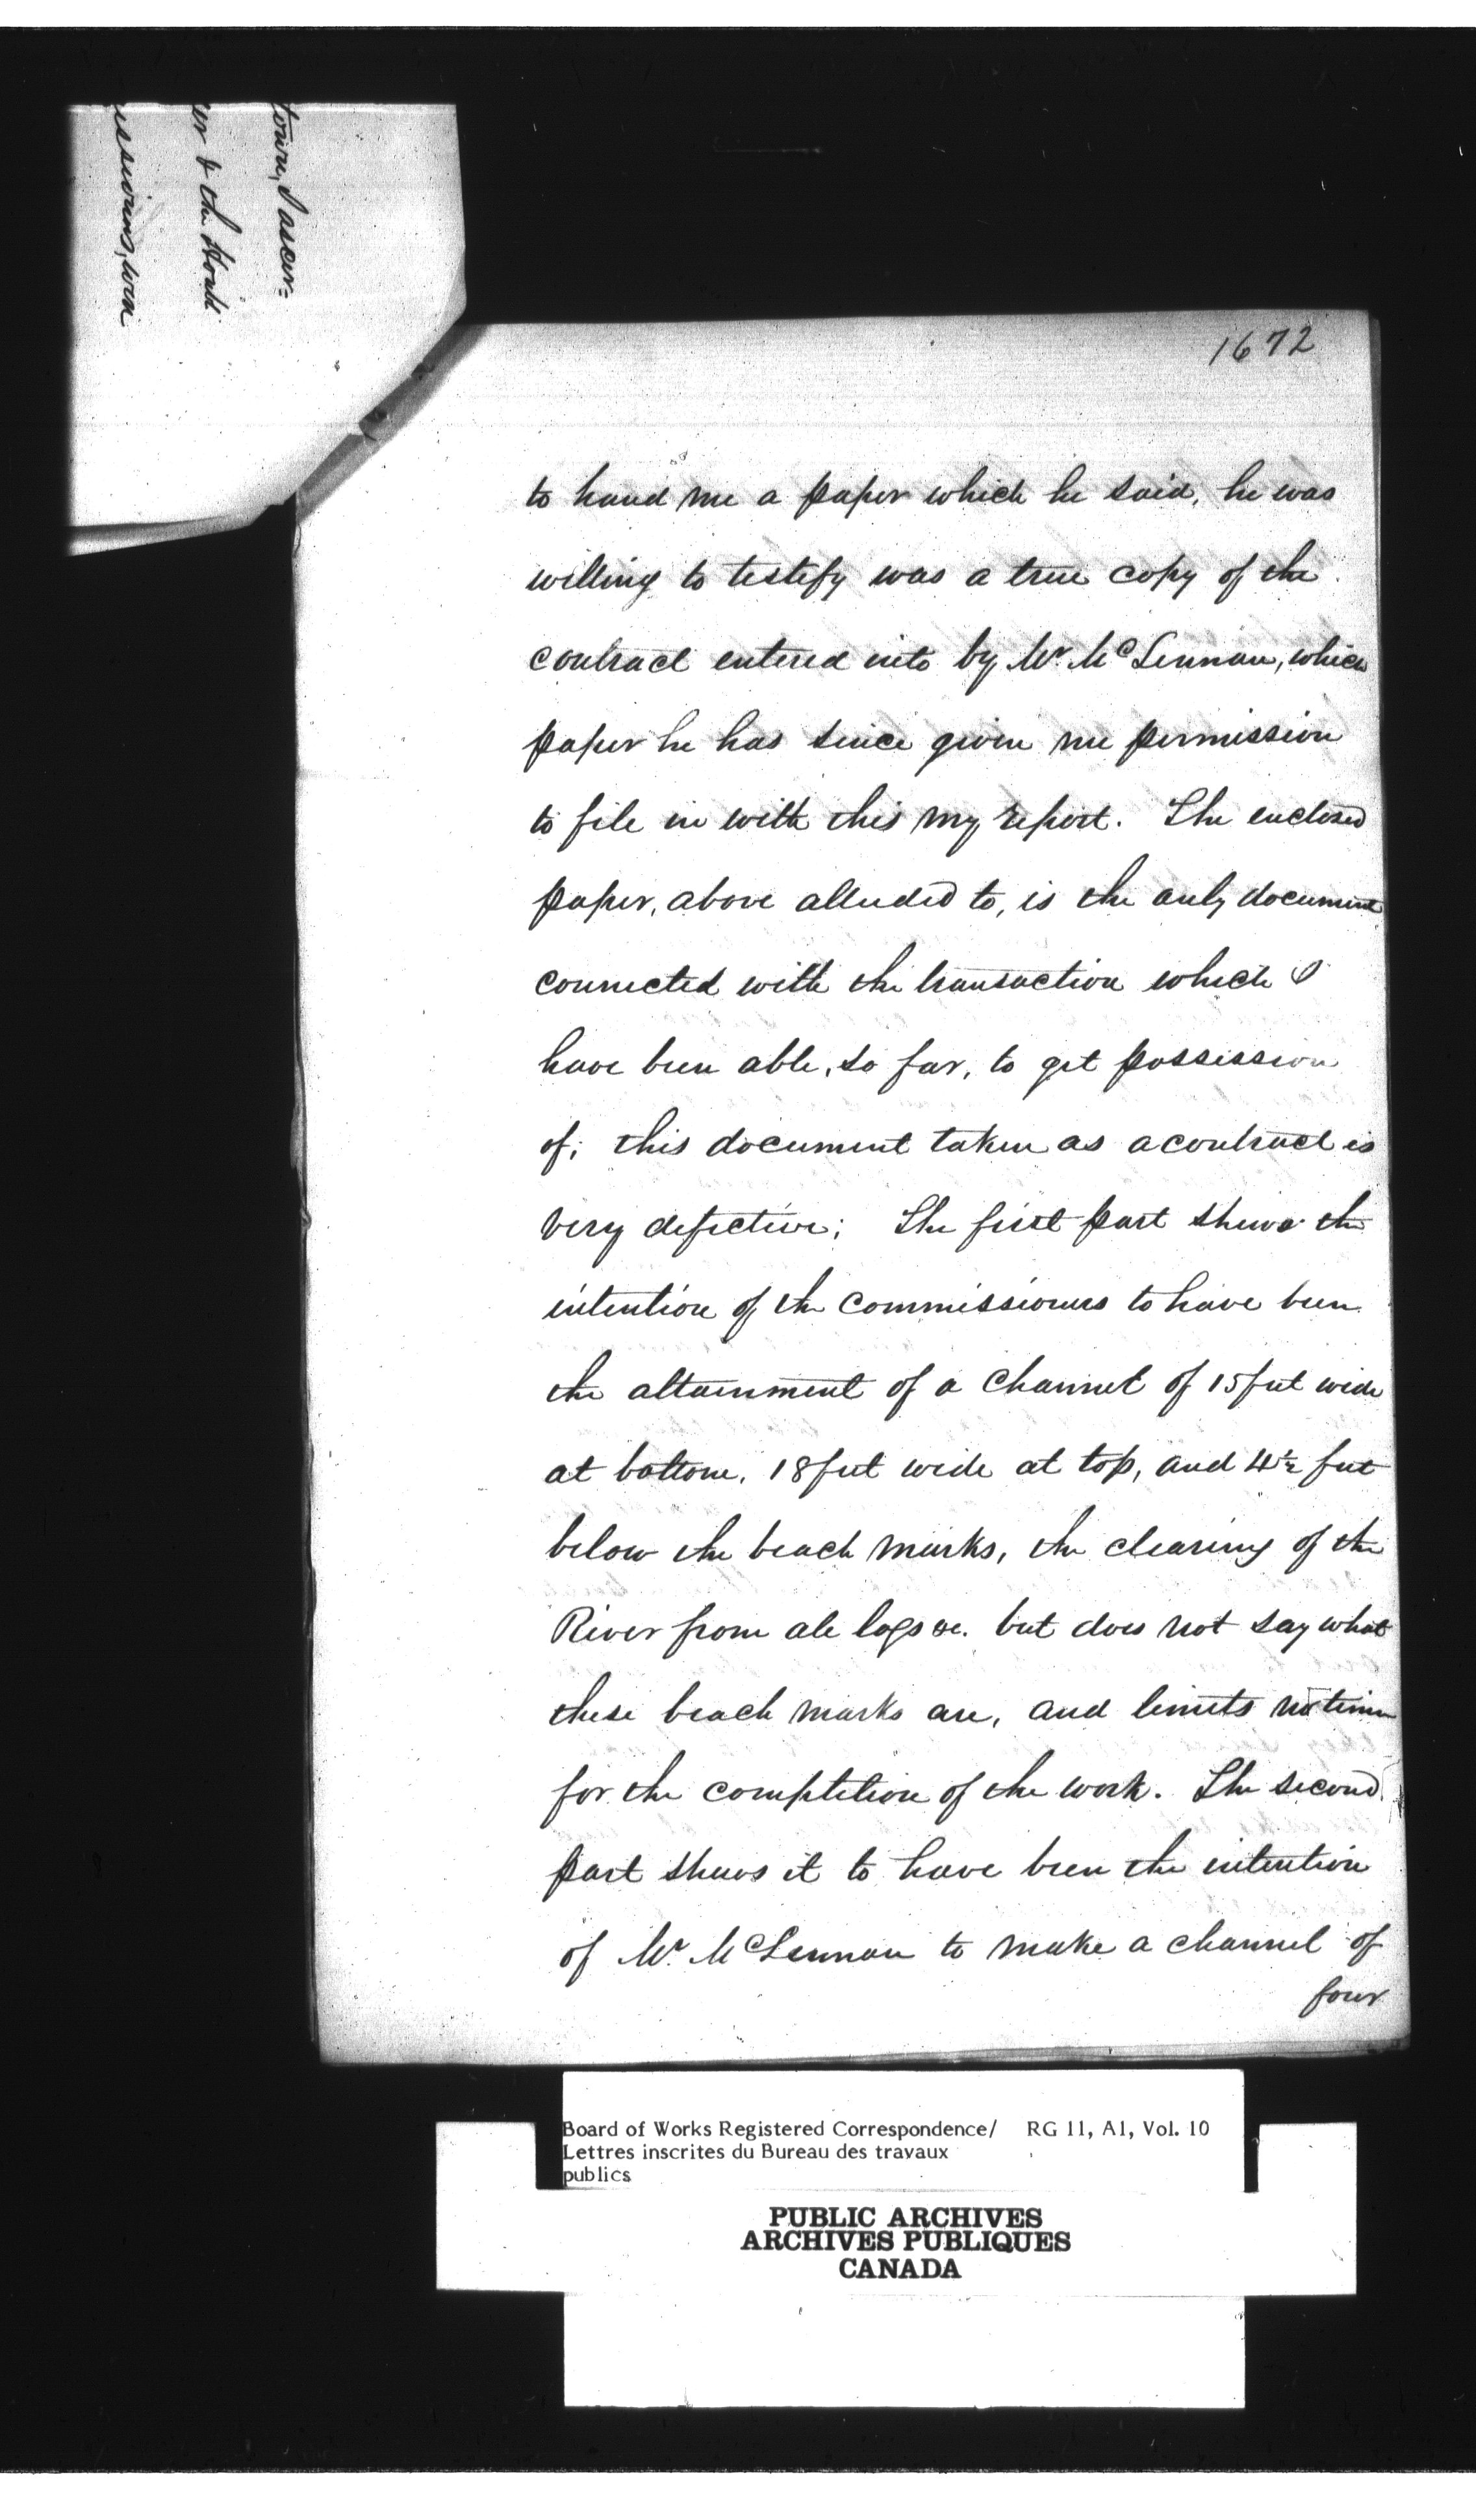 town, I ascer=
er & the Honble
issioners, were
1672
to hand me a paper which he said, he was
willing to testify was a true copy of the
contract entered into by Mr. McLennan, which
paper he has since given me permission
to file in with this my report. The enclosed
paper, above alluded to, is the only document
connected with the transaction which I
have been able, so far, to get possession
of; this document taken as a contract is
very defective; The first part shews the
intention of the Commissioners to have been
the attainment of a Channel of 15 feet wide
at bottom, 18 feet wide at top, and 4½ feet
below the beach marks, the clearing of the
River from all logs &c. but does not say what
these beach marks are, and limits no time
for the completion of the work. The second
part shews it to have been the intention
of Mr. McLennan to make a channel of
four
Board of Works Registered Correspondence/ RG 11, A1, Vol. 10
Lettres inscrites du Bureau des travaux
publics
PUBLIC ARCHIVES
ARCHIVES PUBLIQUES
CANADA